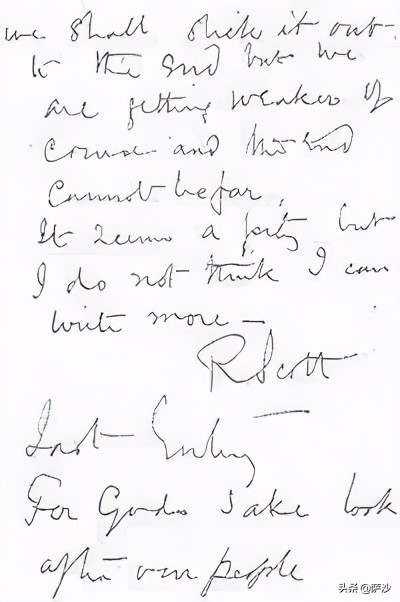 we shall stick it out
to the end but we
are getting weaker of
course and the end
cannot be far.
It seems a pity but
I do not think I can
write more —
R Scott
Last Entry
For Gods sake look
after our people
头条 @萨沙